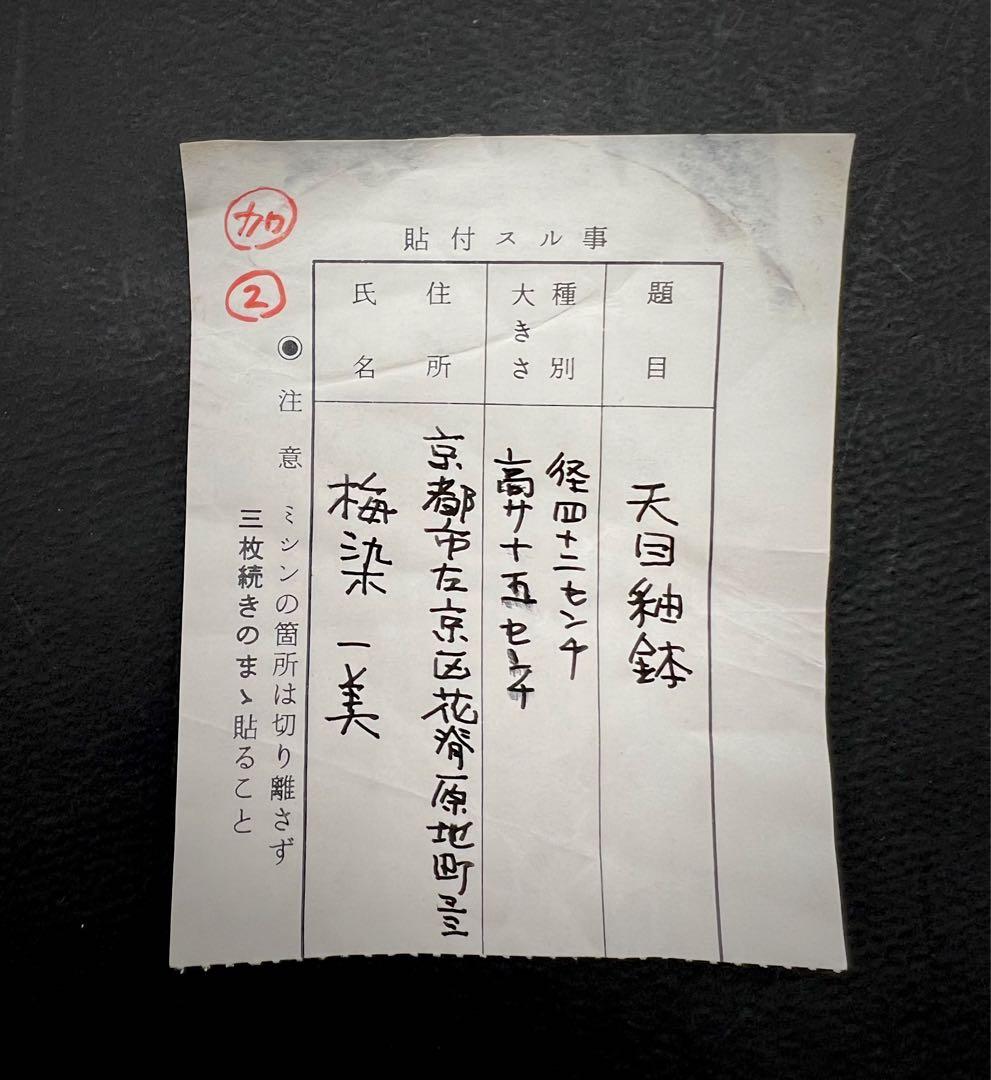 貼付スル事
題目
天目釉鉢
種別
大きさ
径四十二センチ
高サ十五センチ
住所
氏名
京都市左京区花脊原地町
梅染一美
◉注意 ミシンの箇所は切り離さず
三枚続きのまゝ貼ること
加
2